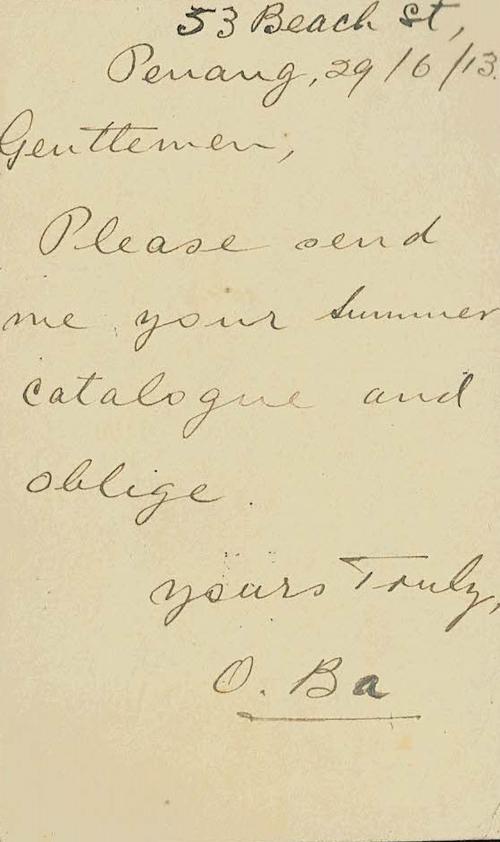 53 Beach St,
Penang, 29/6/13.
Genttemen,
Please send
me your summer
catalogue and
oblige.
yours Truly,
O. Ba